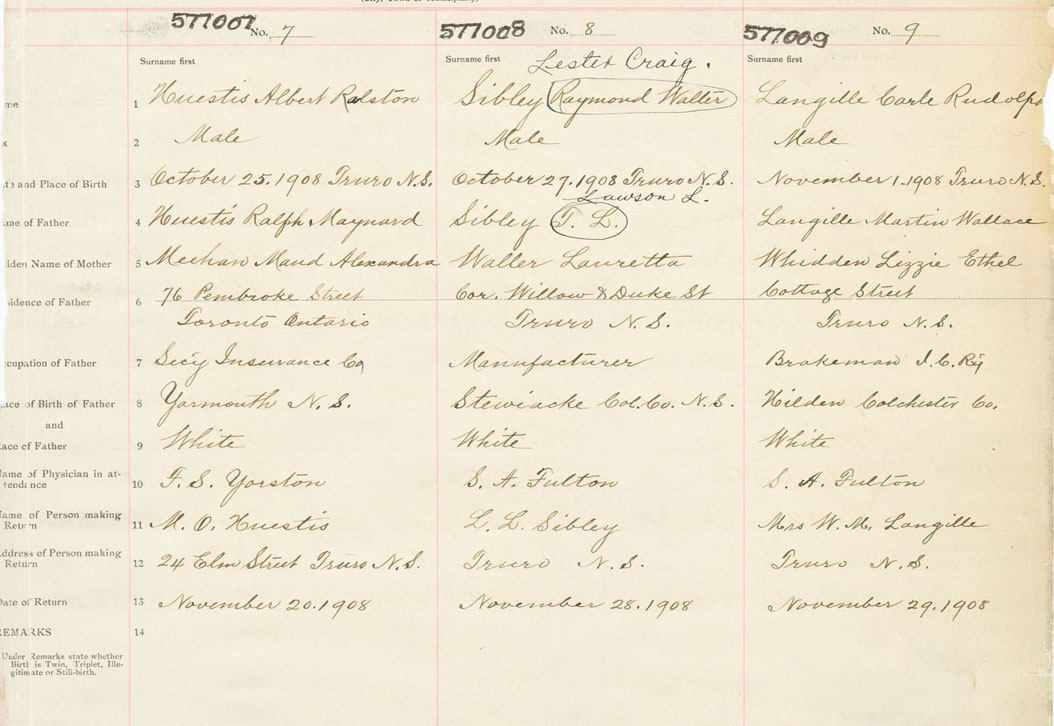 577007 No. 7 577008 No. 8 577009 No. 9
Surname first Surname first Lester Craig. Surname first
1 Huestis Albert Ralston Sibley Raymond Walter Langille Carle Rudolph
2 Male Male Male
and Place of Birth 3 October 25. 1908 Truro N.S. October 27. 1908 Truro N.S. November 1. 1908 Truro N.S.
Lawson L.
of Father 4 Huestis Ralph Maynard Sibley T. L. Langille Martin Wallace
Name of Mother 5 Meehan Maud Alexandra Waller Lauretta Whidden Lizzie Ethel
of Father 6 76 Pembroke Street Cor. Willow & Duke St Cottage Street
Toronto Ontario Truro N.S. Truro N.S.
of Father 7 Secy Insurance Co Manufacturer Brakeman I.C.Ry
of Birth of Father 8 Yarmouth N.S. Stewiacke Col. Co. N.S. Hilden Colchester Co.
and
of Father 9 White White White
Name of Physician in at-
tendance 10 F. S. Yorston S. A. Fulton S. A. Fulton
Name of Person making
Return 11 M. O. Huestis L. L. Sibley Mrs W. M. Langille
Address of Person making
Return 12 24 Elm Street Truro N.S. Truro N.S. Truro N.S.
Date of Return 13 November 20. 1908 November 28. 1908 November 29. 1908
REMARKS 14
Under Remarks state whether
Birth is Twin, Triplet, Ille-
gitimate or Still-birth.